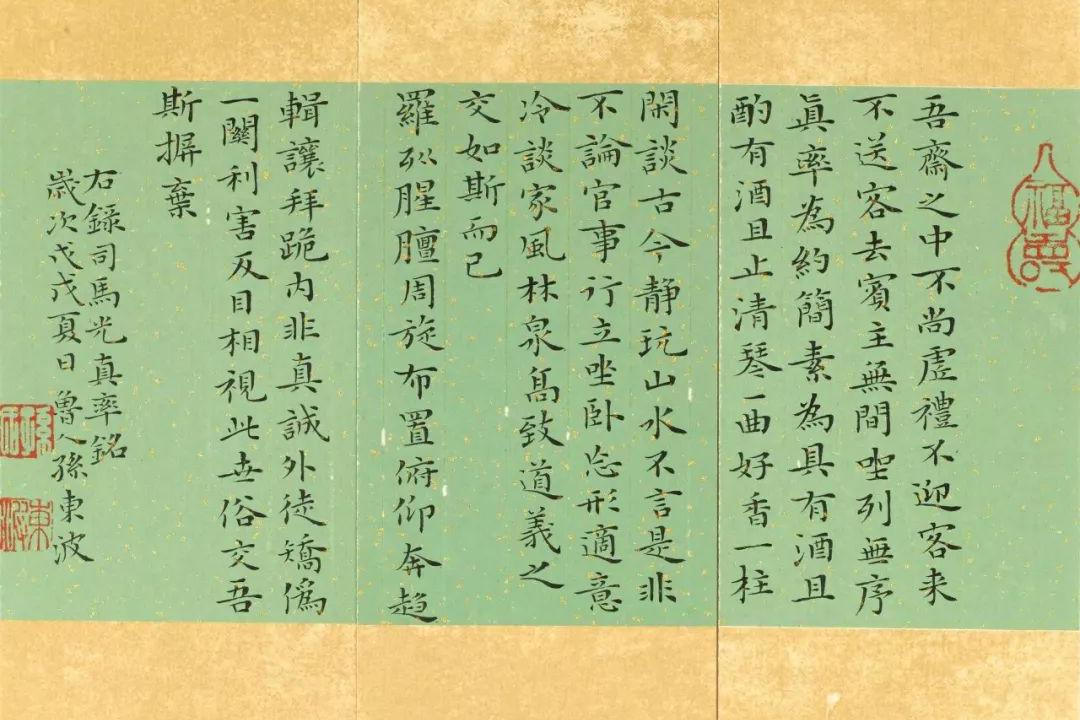 吾齋之中不尚虛禮不迎客来
不送客去賓主無間坐列無序
眞率為約簡素為具有酒且
酌有酒且止清琴一曲好香一柱
閑談古今静玩山水不言是非
不論官事行立坐卧忘形適意
冷談家風林泉髙致道義之
交如斯而已
羅列腥膻周旋布置俯仰奔趋
輯讓拜跪内非真誠外徒矯僞
一關利害反目相視此世俗交吾
斯摒棄
右錄司馬光真率銘
歲次戊戌夏日魯人孫東波